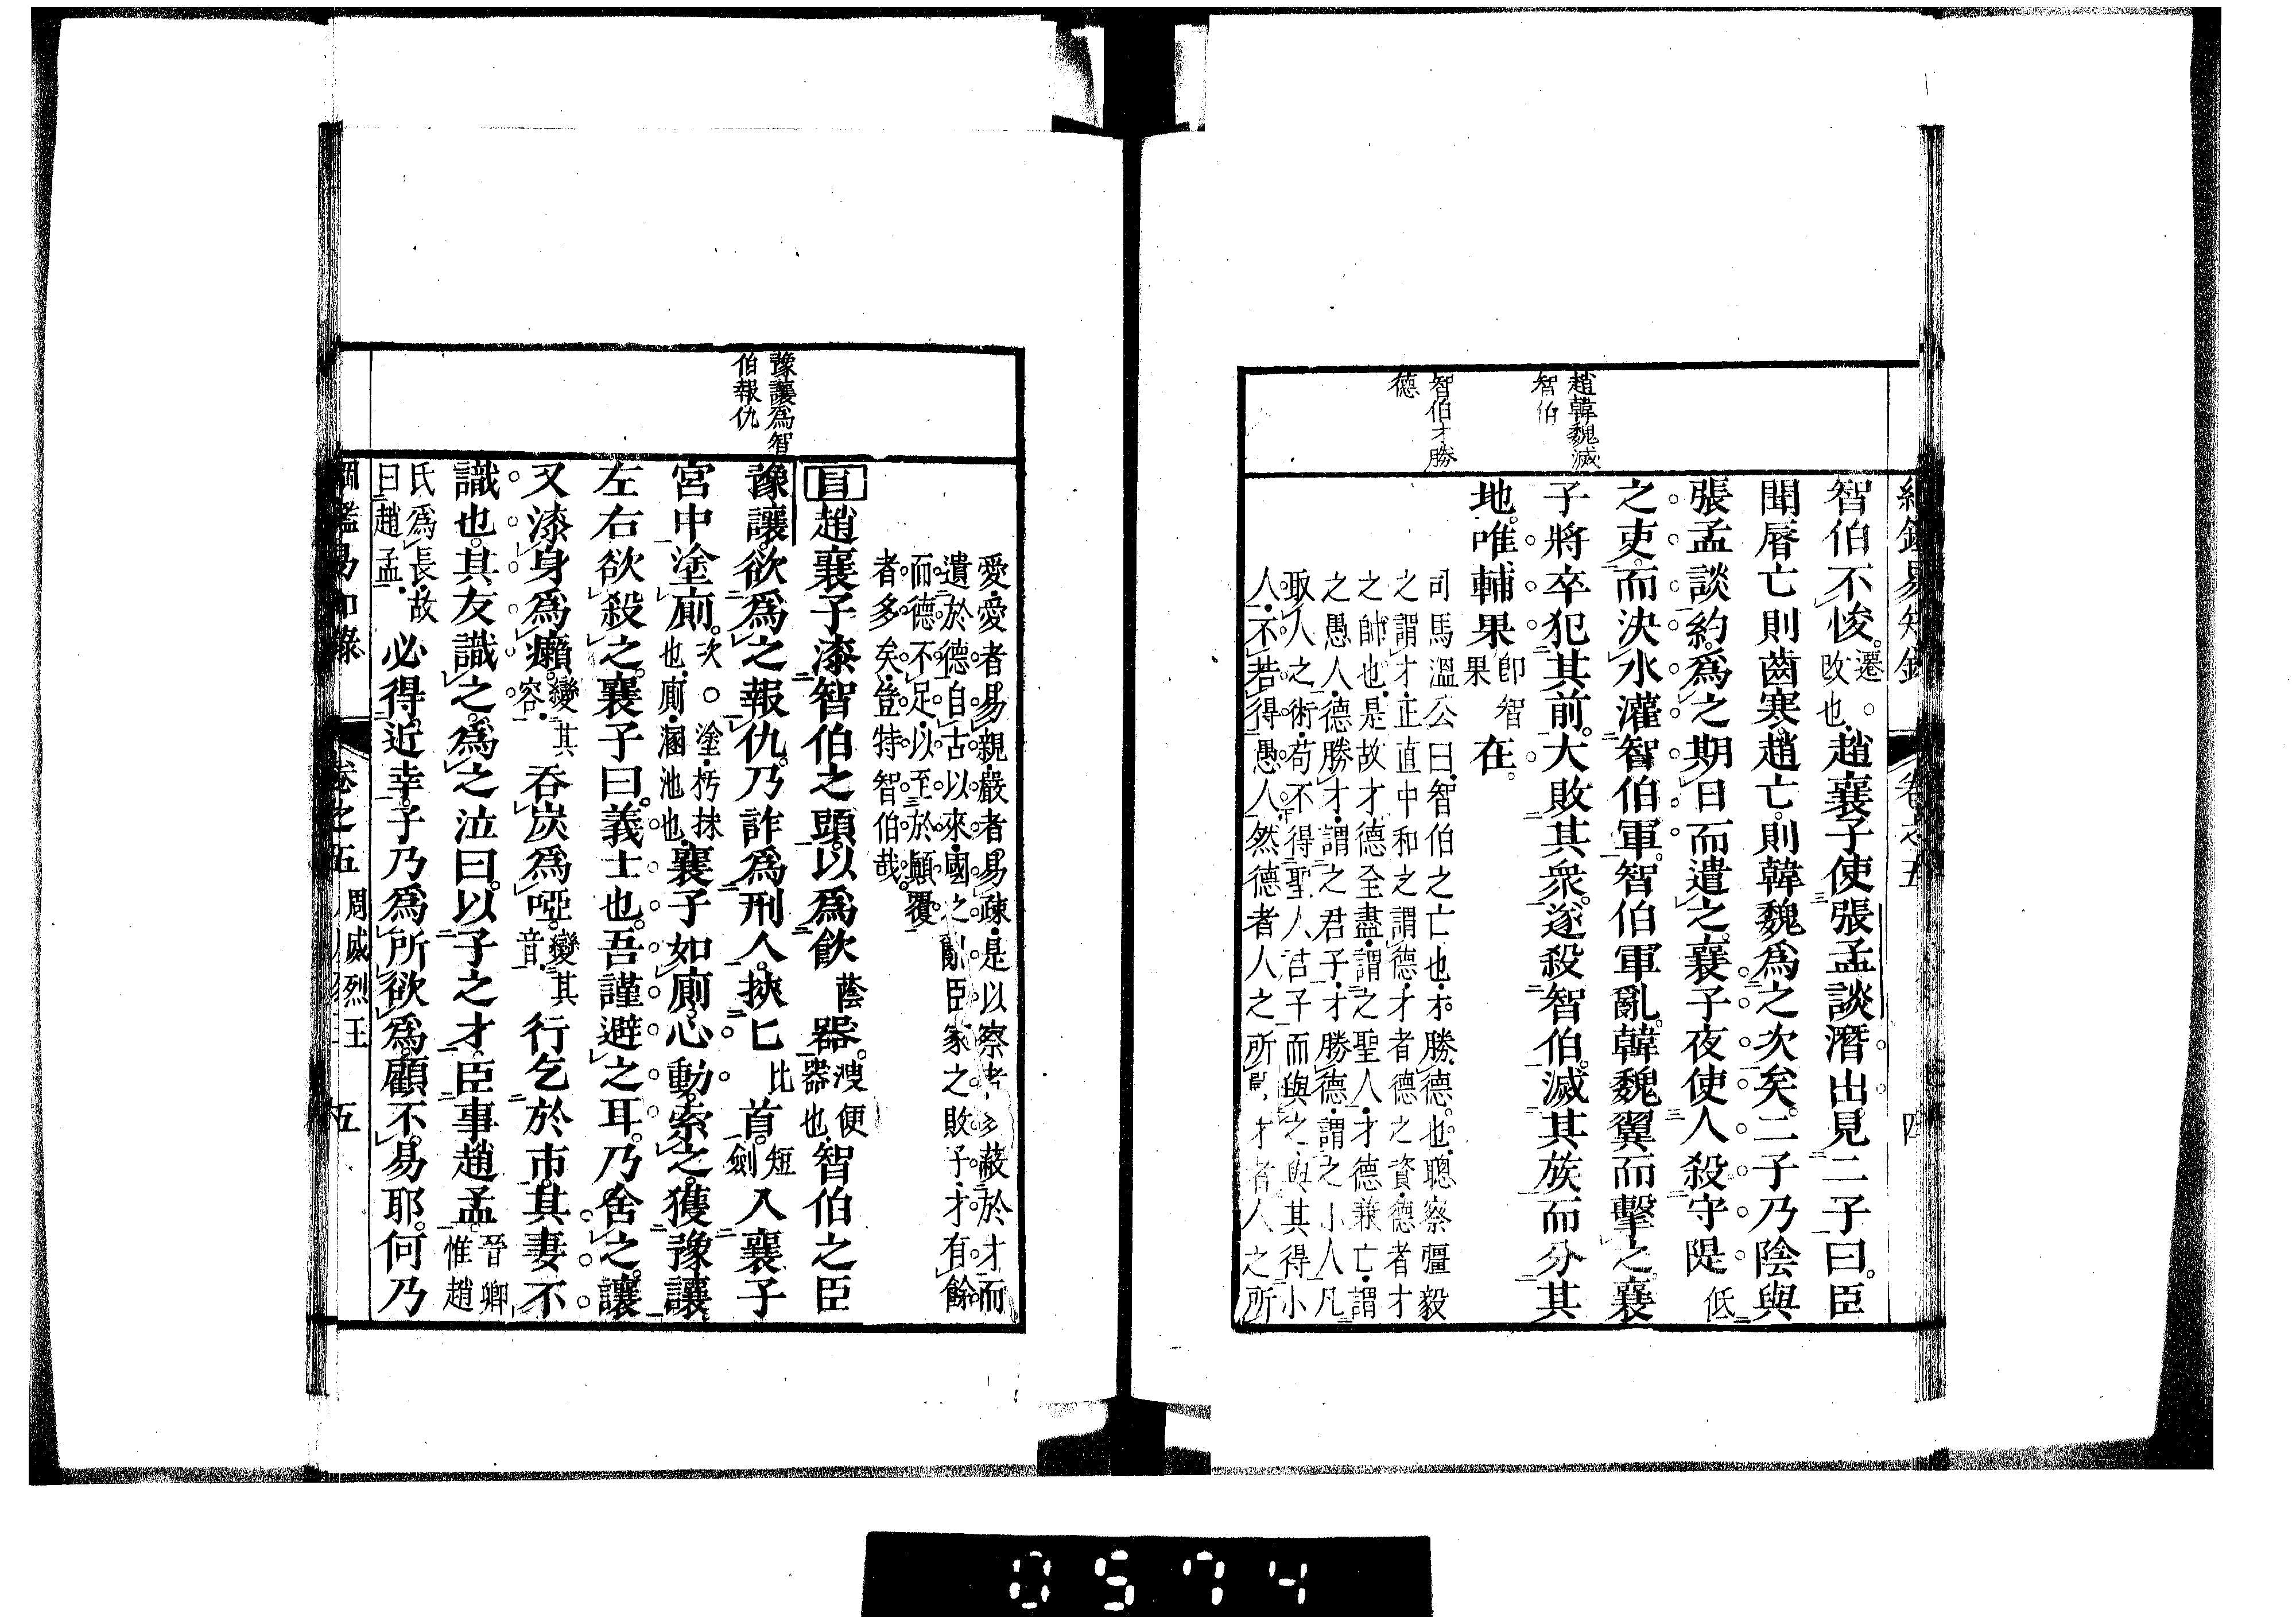 趙韓魏滅
智伯
智伯才勝
德
智伯不悛遷○改也趙襄子使張孟談潛出見二子曰臣
聞唇亡則齒寒趙亡則韓魏爲之次矣二子乃陰與
張孟談約爲之期日而遣之襄子夜使人殺守隄低
之吏而決水灌智伯軍智伯軍亂韓魏翼而擊之襄
子將卒犯其前大敗其衆遂殺智伯滅其族而分其
地唯輔果卽智果在
司馬溫公曰智伯之亡也才勝德也聰察彊毅
之謂才正直中和之謂德才者德之資德者才
之帥也是故才德全盡謂之聖人才德兼亡謂
之愚人德勝才謂之君子才勝德謂之小人凡
取人之術苟不得聖人君子而與之與其得小
人不若得愚人然德者人之所才者人之所
卷之五
四
豫讓爲智
伯報仇
愛愛者易親嚴者易疎是以察者多蔽於才而
遺於德自古以來國之亂臣家之敗子才有餘
而德不足以至於顚覆
者多矣豈特智伯哉
目趙襄子漆智伯之頭以爲飲蔭器溲便器也智伯之臣
豫讓欲爲之報仇乃詐爲刑人挾匕比首短劍入襄子
宮中塗廁次○塗朽抹也廁溷池也襄子如廁心動索之獲豫讓
左右欲殺之襄子曰義士也吾謹避之耳乃舍之讓
又漆身爲癩變其容吞炭爲啞變其音行乞於市其妻不
識也其友識之爲之泣曰以子之才臣事趙孟晉卿惟趙
氏爲長故曰趙孟必得近幸子乃爲所欲爲顧不易耶何乃
綱鑑易知錄
卷之五
周威烈王
五
0574